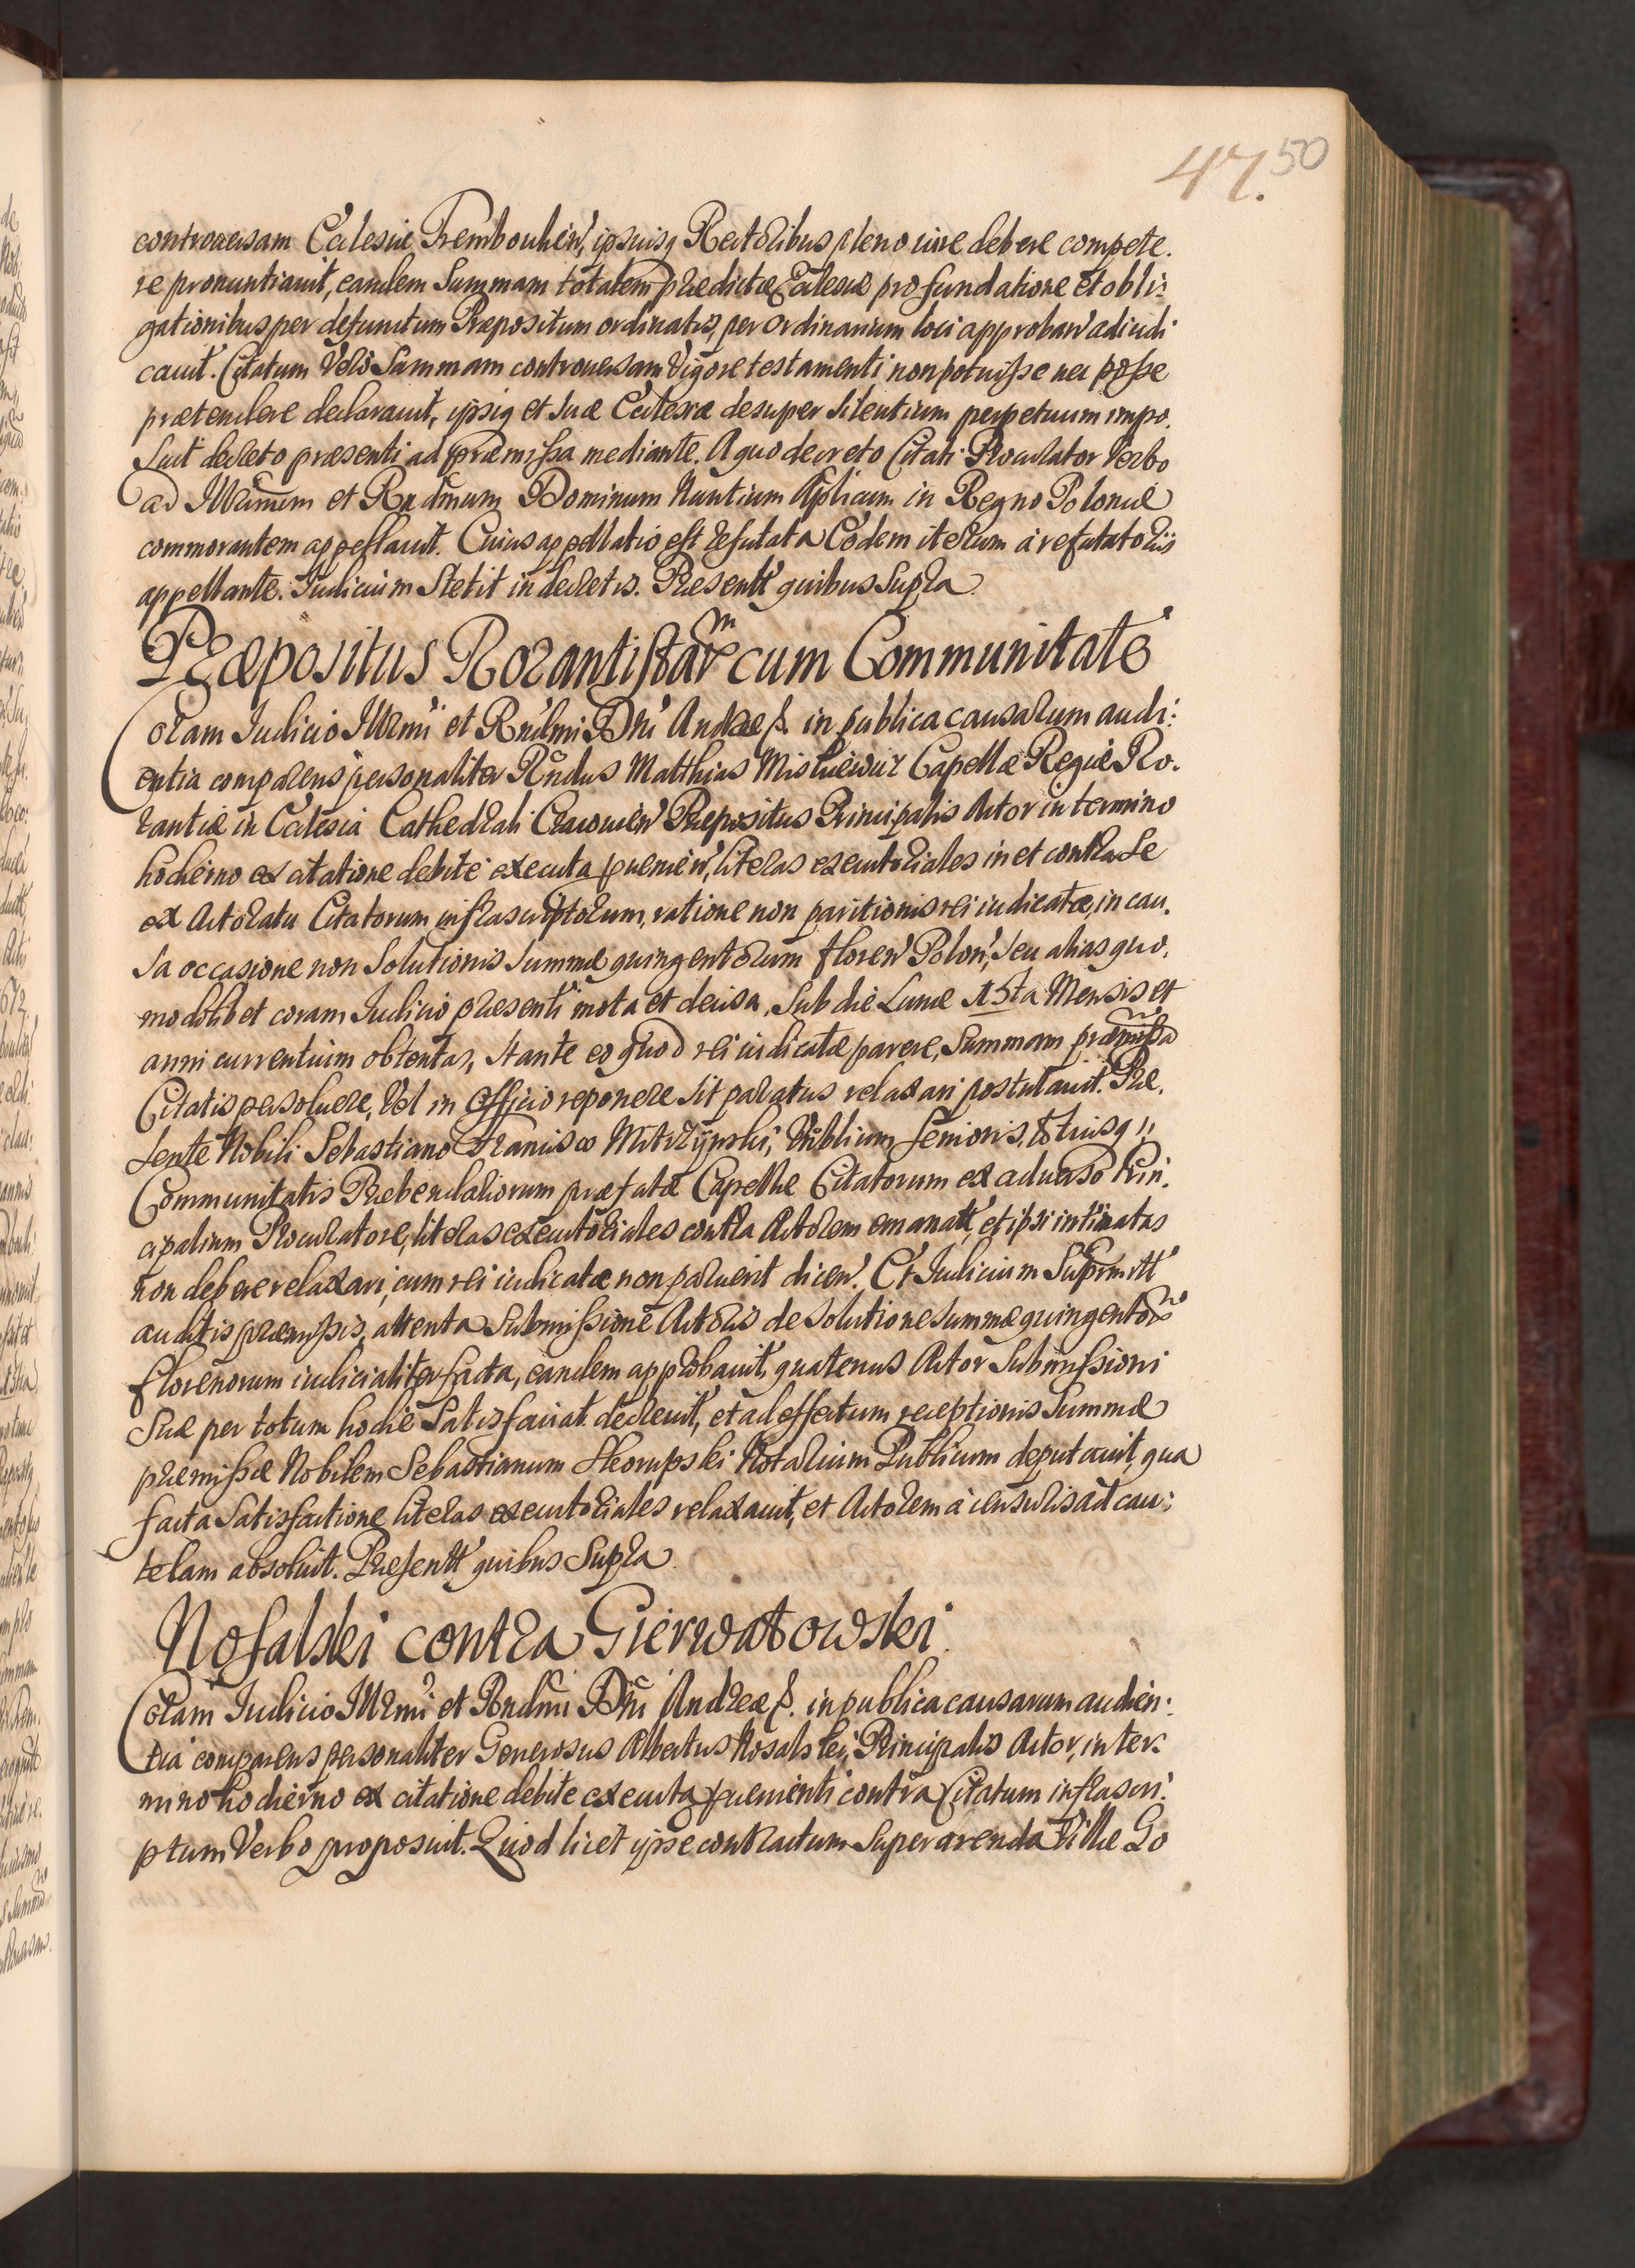 47. 50
controuersam Ecclesiæ Trembouliẽn, ipsiusq Rectoribus pleno iure debere compete.
re pronuntiauit, eandem Summam totalem prædictæ Ecclesiæ pro fundatione et obli:
gationibus per defunctum Præpositum ordinatis, per Ordinarium loci approbañ adiudi
cauit. Citatum Vero Summam controuersam Vigore testamenti non potuisse nec posse
prætendere declarauit, ipsiq et suæ Ecclesiæ desuper silentium perpetuum impo.
suit decreto præsenti ad præmissa mediante. A quo decreto Citati Procurator Verbo
ad Illm̃um et Rndm̃um Dominum Nuntium Aplicum in Regno Poloniæ
commorantem appellauit. Cuius appellatio est refutata Eodem iterum à refutatorijs
appellante. Iudicium Stetit in decretis. Præsentt quibus Supra
Præpositus Rorantistarm̃ cum Communitate
Coram Iudicio Illm̃i et Rndm̃i Dñi Andreæ p. in publica causarum audi:
entia comparens personaliter Rñdus Matthias Miskiewicz Capellæ Regiæ Ro.
rantiæ in Ecclesia Cathedrali Cracouieñ Præpositus Principalis Actor in termino
hodierno ex citatione debite executa proueniẽn, literas executoriales in et contra Se
ex Actoratu Citatorum infrascriptorum, ratione non paritionis rei iudicatæ, in cau.
sa occasione non Solutionis Summæ quingentorum floreñ Poloñ, seu alias quo.
modolibet coram Iudicio præsenti mota et decisa, sub die Lunæ 15ta Mensis et
anni currentium obtentas, stante eo quod rei iudicatæ parere, Summam præmissã
Citatis persoluere, Vel in Officio reponere sit paratus relaxari postulauit. Præ.
sente Nobili Sebastiano Francisco Mitrzynski, Publicum senioris, totiusq
Communitatis Præbendariorum præfatæ Capellæ Citatorum ex aduerso Prin.
cipalium Procuratore, literas executoriales contra Actorem emanatt, et ipsi intimatas
non debere relaxari, cum rei iudicatæ non paruerit diceñ. Et Iudicium Suprm̃ tt
auditis præmissis, attenta Submissione Actoris de solutione summæ quingentorm̃
florenorum iudicialiter facta, eandem approbauit, quatenus Actor Submissioni
suæ per totum hodie Satisfaciat decreuit, et ad effectum receptionis Summæ
præmissæ Nobilem Sebastianum Skorupski Notarium Publicum deputauit, qua
facta Satisfactione literas executoriales relaxauit, et Actorem à censuris ad cau:
telam absoluit. Præsentt quibus Supra
Nosalski contra Gierwatowski.
Coram Iudicio Illm̃i et Rndm̃i Dñi Andreæ p. in publica causarum audien:
tia comparens personaliter Generosus Albertus Nosalski, Principalis Actor, in ter:
mino hodierno ex citatione debite executa proueniẽnti contra Citatum infrascri:
ptum Verbo proposuit. Quod licet ipse contractum super arenda Villæ Go